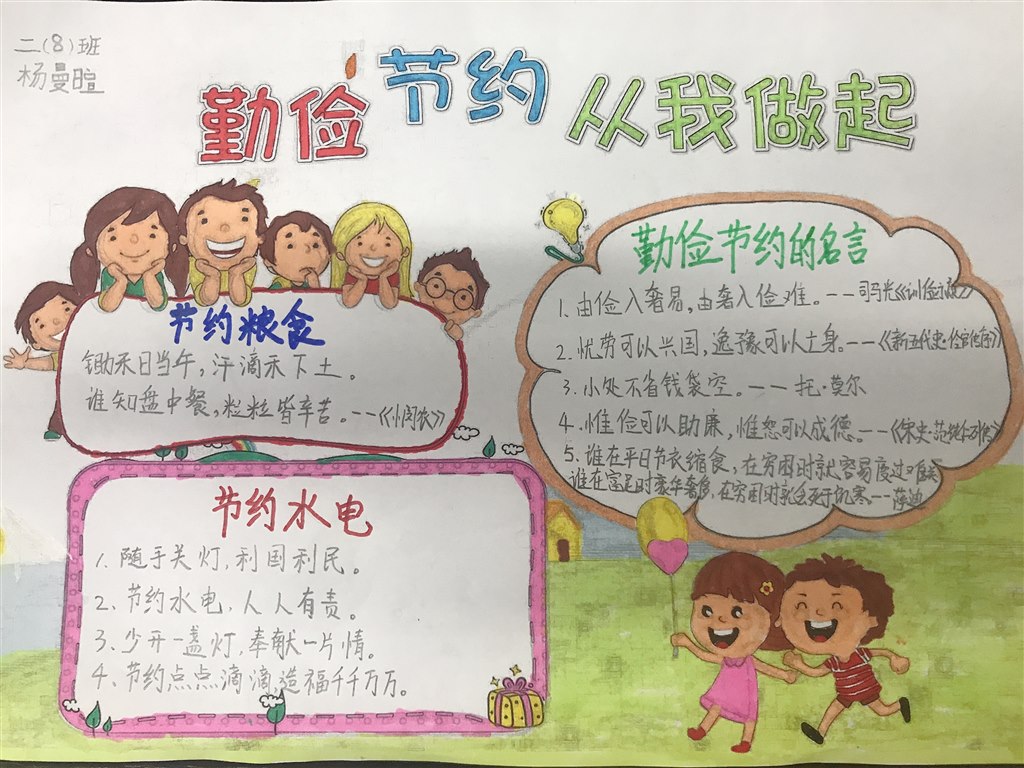 二(8)班
杨曼暄
勤俭节约 从我做起
节约粮食
锄禾日当午，汗滴禾下土。
谁知盘中餐，粒粒皆辛苦。——《小闵农》
勤俭节约的名言
1.由俭入奢易，由奢入俭难。——司马光《训俭》
2.忧劳可以兴国，逸豫可以亡身。——《新五代史·伶官传序》
3.小处不省钱袋空。——托·莫尔
4.惟俭可以助廉，惟恕可以成德。——《宋史·范纯仁列传》
5.谁在平日节衣缩食，在穷困时就容易度过难关
谁在富足时豪华奢侈，在穷困时就会死于饥寒——萨迪
节约水电
1.随手关灯，利国利民。
2.节约水电，人人有责。
3.少开一盏灯，奉献一片情。
4.节约点点滴滴造福千千万万。